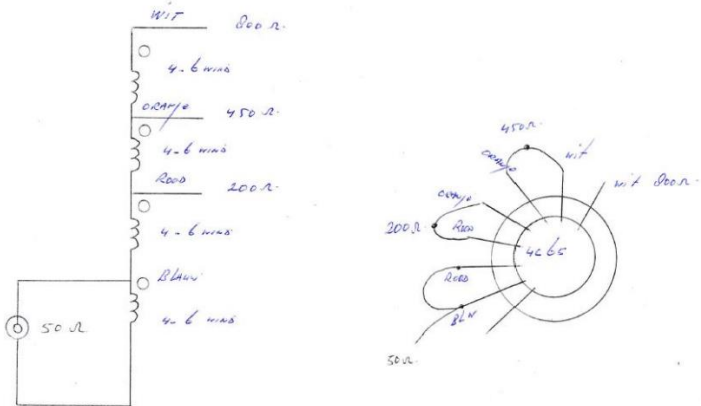 WIT 800 Ω.
4-6 WIND
ORANJE 450 Ω.
4-6 WIND
ROOD 200 Ω.
4-6 WIND
BLAUW
4-6 WIND
50 Ω.
450Ω.
ORANJE
WIT
WIT 800Ω.
ORANJE
200Ω.
ROOD
4C65
ROOD
BLW
50Ω.